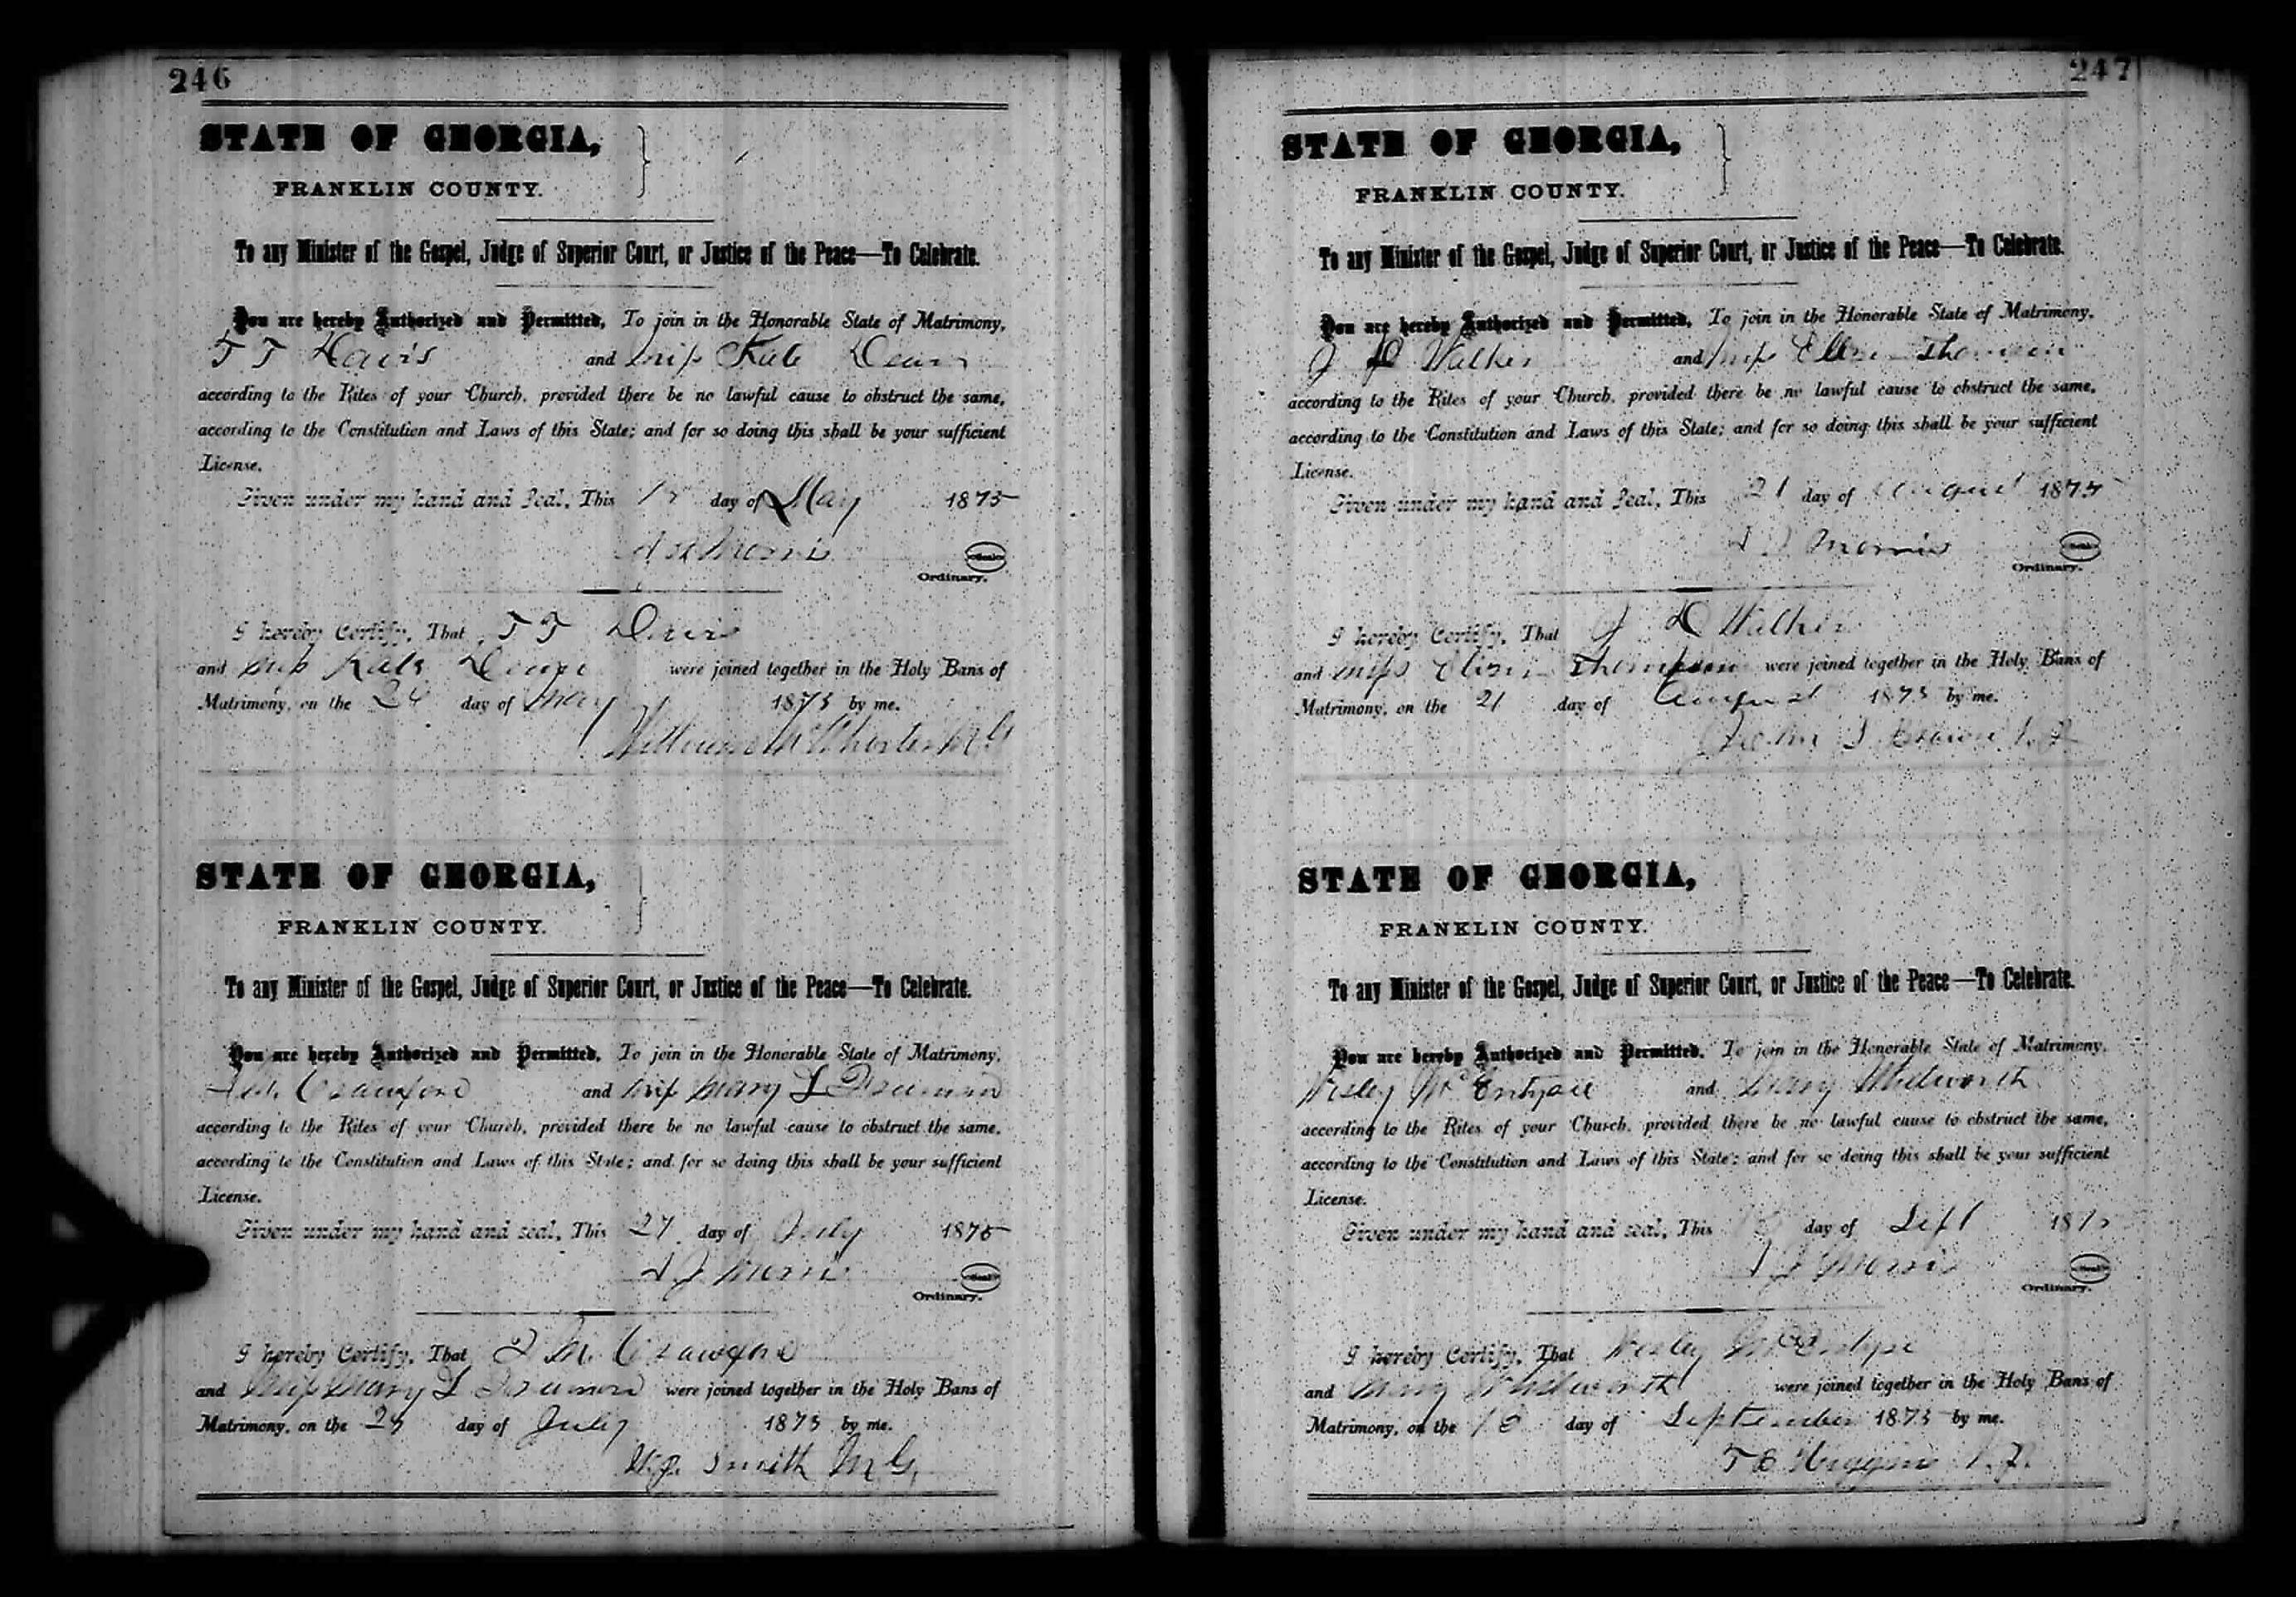 246
STATE OF GEORGIA,
FRANKLIN COUNTY.
To any Minister of the Gospel, Judge of Superior Court, or Justice of the Peace—To Celebrate.
You are hereby Authorized and Permitted, To join in the Honorable State of Matrimony,
T T Davis and Miss Kate
according to the Rites of your Church, provided there be no lawful cause to obstruct the same,
according to the Constitution and Laws of this State; and for so doing this shall be your sufficient
License.
Given under my hand and Seal, This day of May 1875
Morris
Seal
Ordinary.
I hereby Certify, That T T Davis
and Miss Kate were joined together in the Holy Bans of
Matrimony, on the day of May 1875 by me.
William
STATE OF GEORGIA,
FRANKLIN COUNTY.
To any Minister of the Gospel, Judge of Superior Court, or Justice of the Peace—To Celebrate.
You are hereby Authorized and Permitted, To join in the Honorable State of Matrimony,
Crawford and Miss Mary L
according to the Rites of your Church, provided there be no lawful cause to obstruct the same,
according to the Constitution and Laws of this State; and for so doing this shall be your sufficient
License.
Given under my hand and seal, This 27 day of July 1875
Morris
Seal
Ordinary.
I hereby Certify, That M. Crawford
and Miss Mary L were joined together in the Holy Bans of
Matrimony, on the day of July 1875 by me.
Smith M G,
247
STATE OF GEORGIA,
FRANKLIN COUNTY.
To any Minister of the Gospel, Judge of Superior Court, or Justice of the Peace—To Celebrate.
You are hereby Authorized and Permitted, To join in the Honorable State of Matrimony,
J D Walker and Miss
according to the Rites of your Church, provided there be no lawful cause to obstruct the same,
according to the Constitution and Laws of this State; and for so doing this shall be your sufficient
License.
Given under my hand and Seal, This 21 day of August 1875
Morris
Seal
Ordinary.
I hereby Certify, That J D Walker
and Miss Thompson were joined together in the Holy Bans of
Matrimony, on the 21 day of August 1875 by me.
Brown
STATE OF GEORGIA,
FRANKLIN COUNTY.
To any Minister of the Gospel, Judge of Superior Court, or Justice of the Peace—To Celebrate.
You are hereby Authorized and Permitted, To join in the Honorable State of Matrimony,
Wesley and Mary Whitworth
according to the Rites of your Church, provided there be no lawful cause to obstruct the same,
according to the Constitution and Laws of this State; and for so doing this shall be your sufficient
License.
Given under my hand and seal, This day of Sept 1875
Morris
Seal
Ordinary.
I hereby Certify, That Wesley
and Mary Whitworth were joined together in the Holy Bans of
Matrimony, on the day of September 1875 by me.
Higgins